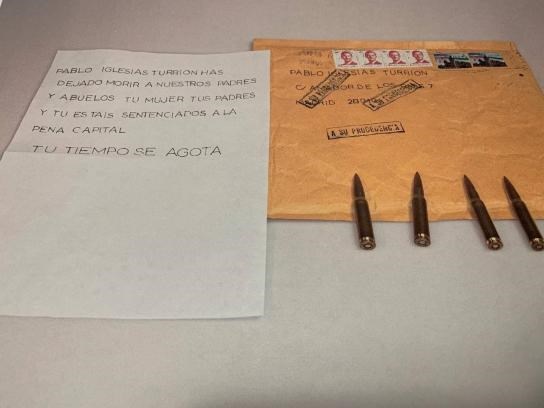 PABLO IGLESIAS TURRION HAS
DEJADO MORIR A NUESTROS PADRES
Y ABUELOS TU MUJER TUS PADRES
Y TU ESTAIS SENTENCIADOS A LA
PENA CAPITAL
TU TIEMPO SE AGOTA
PABLO IGLESIAS TURRION
C/ DE LOS 7
MADRID
A SU PRUDENCIA